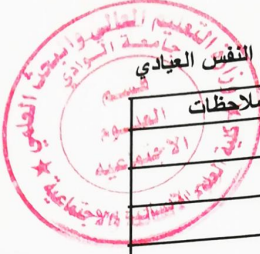 النفس العيادي
ملاحظات
وزارة التعليم العالي والبحث العلمي
جامعة الوادي
قسم
العلوم
الاجتماعية
كلية العلوم الإنسانية والاجتماعية